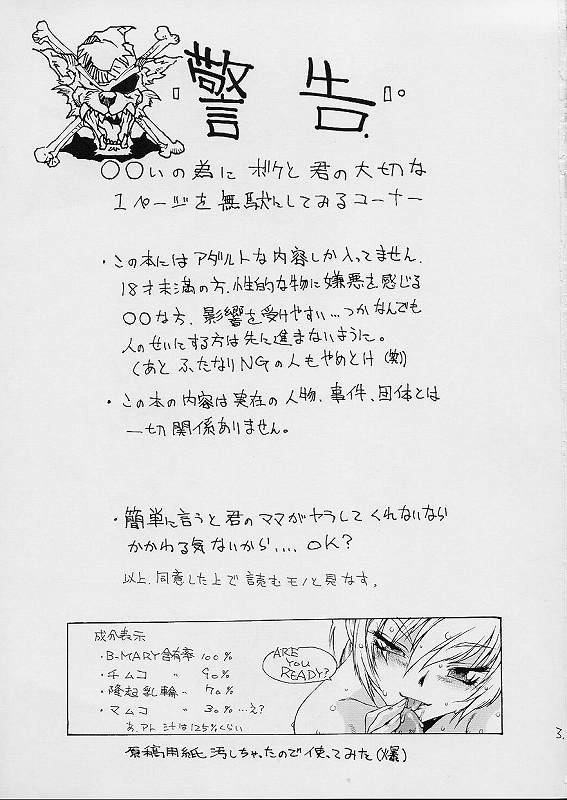 警告
○○いの為にボクと君の大切な
1ページを無駄にしてみるコーナー
・この本にはアダルトな内容しか入ってません。
18才未満の方、性的な物に嫌悪を感じる
○○な方、影響を受けやすい…つかなんでも
人のせいにする方は先に進まないように。
(あと ふたなりNGの人もやめとけ(笑)
・この本の内容は実在の人物、事件、団体とは
一切関係ありません。
・簡単に言うと君のママがヤラしてくれないなら
かかわる気ないから.... OK?
以上、同意した上で読むモノと見なす。
成分表示
・B-MARY含有率 100%
・チムコ 〃 90%
・隆起乳輪 〃 70%
・マムコ 〃 30%…え?
あ、アト汁は125%くらい
ARE
YOU
READY?
原稿用紙汚しちゃったので使ってみた(爆)
3.